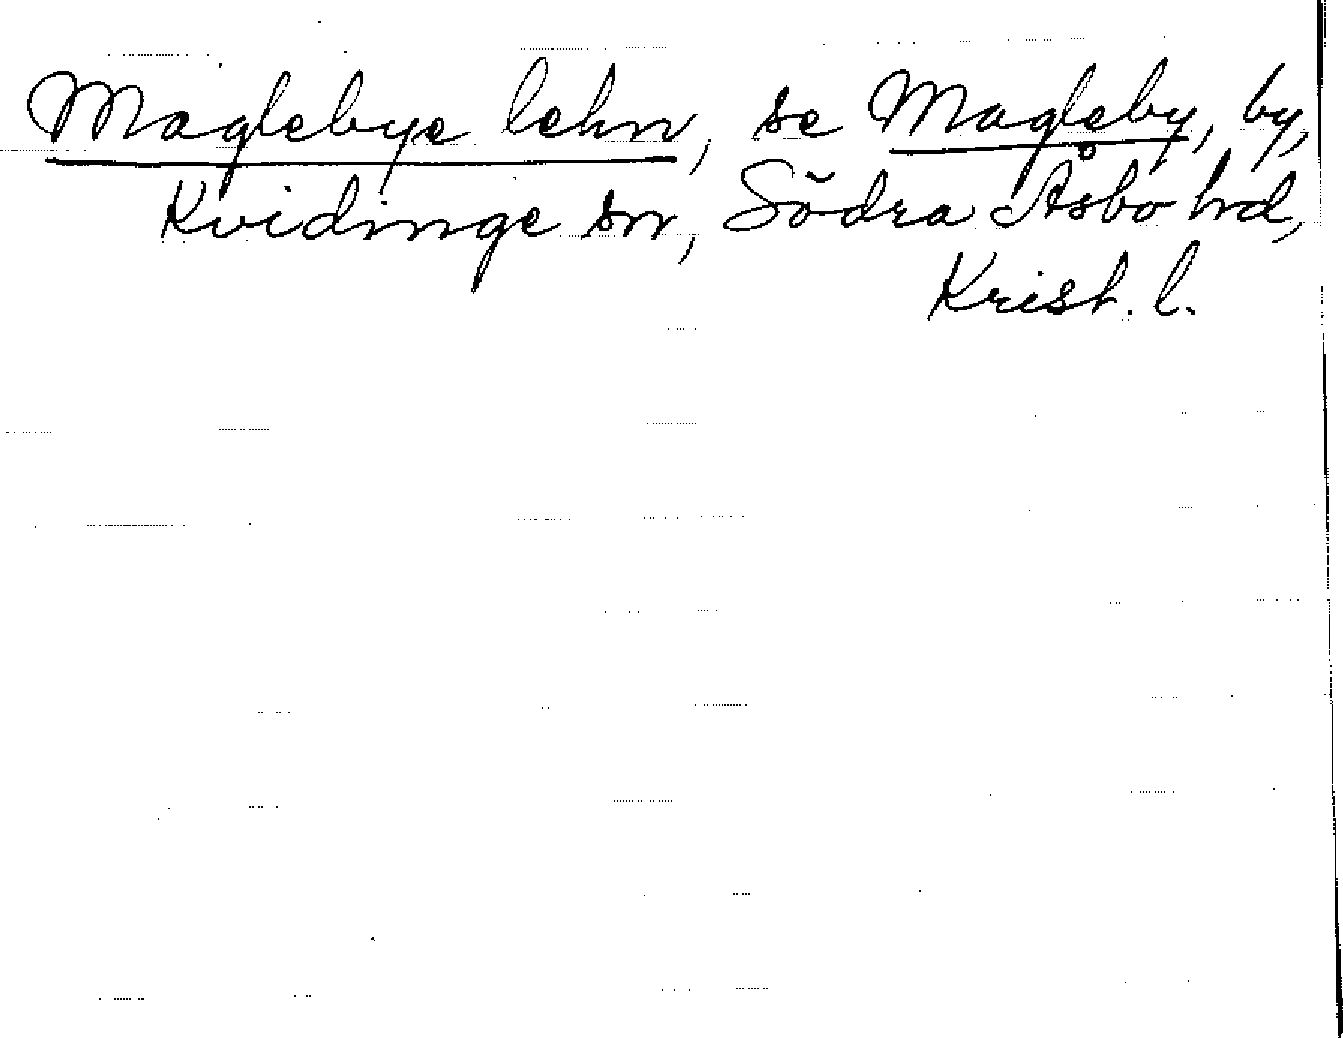 Maglebye lehn, se Magleby, by,
Kvidinge sn, Södra Åsbo hd,
Krist. l.